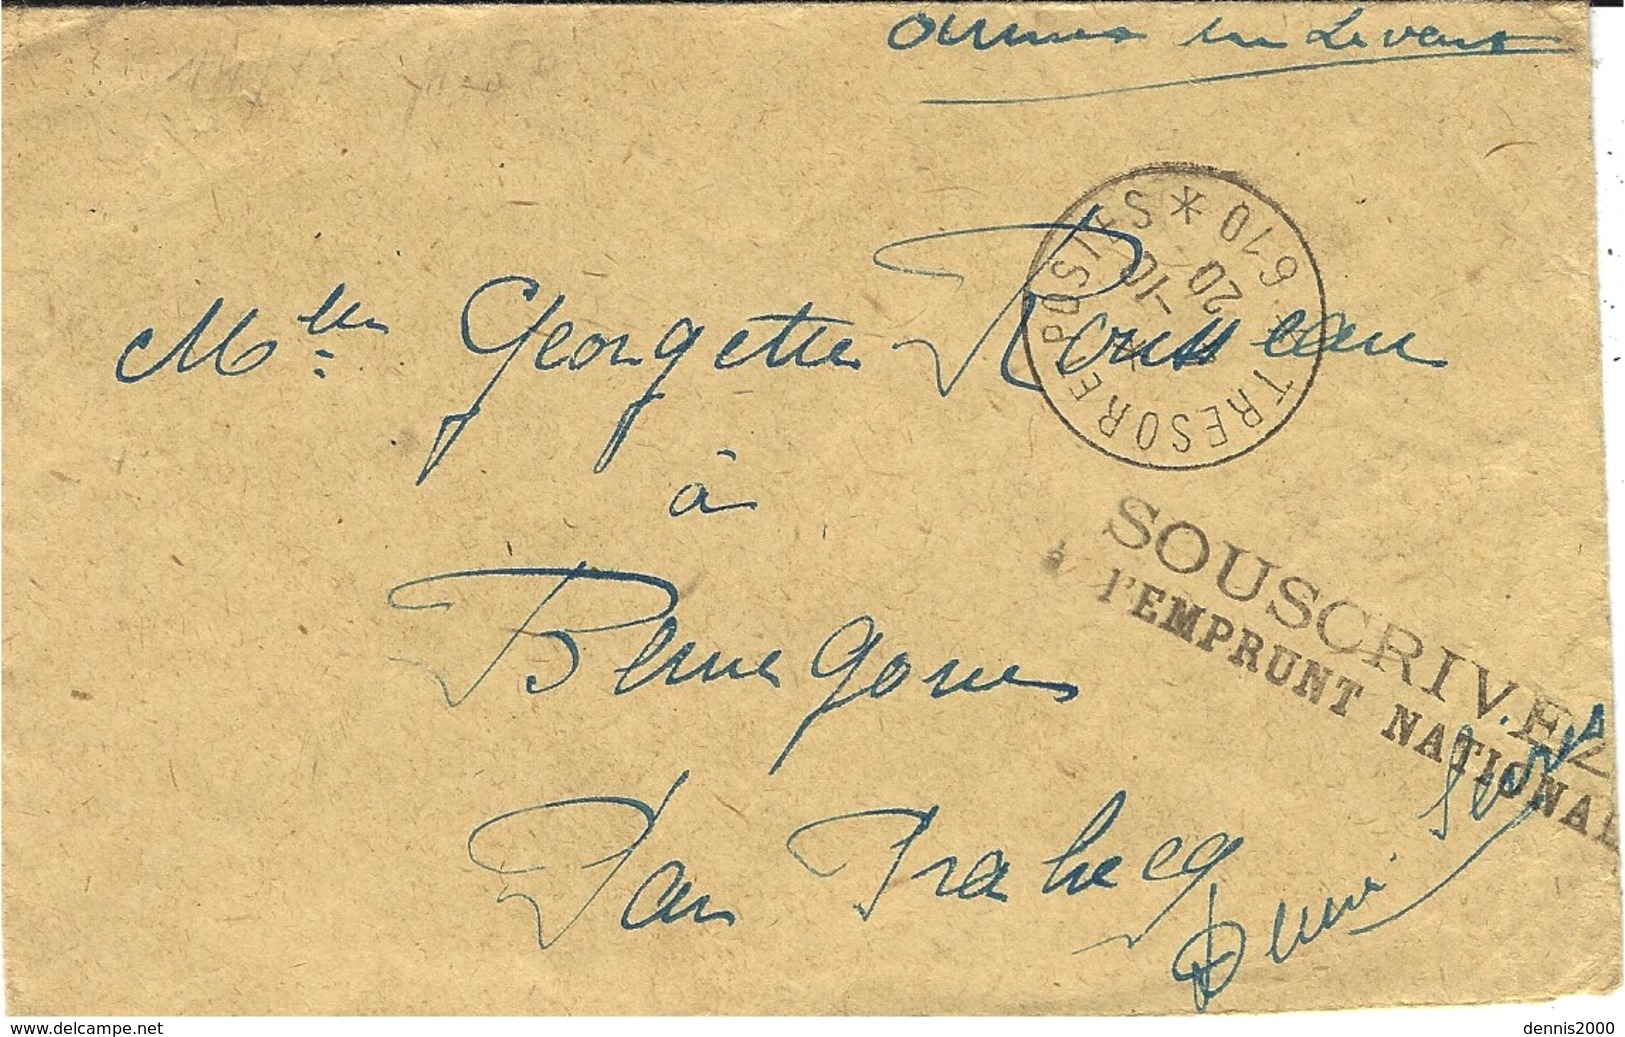 Armées du Levant
TRESOR ET POSTES * 610 *
20 -10
Mlle Georgette Rousseau
à
Bernegoues
SOUSCRIVEZ
à l'EMPRUNT NATIONAL
Par Prahecq
Deux Sèvres
www.delcampe.net
dennis2000